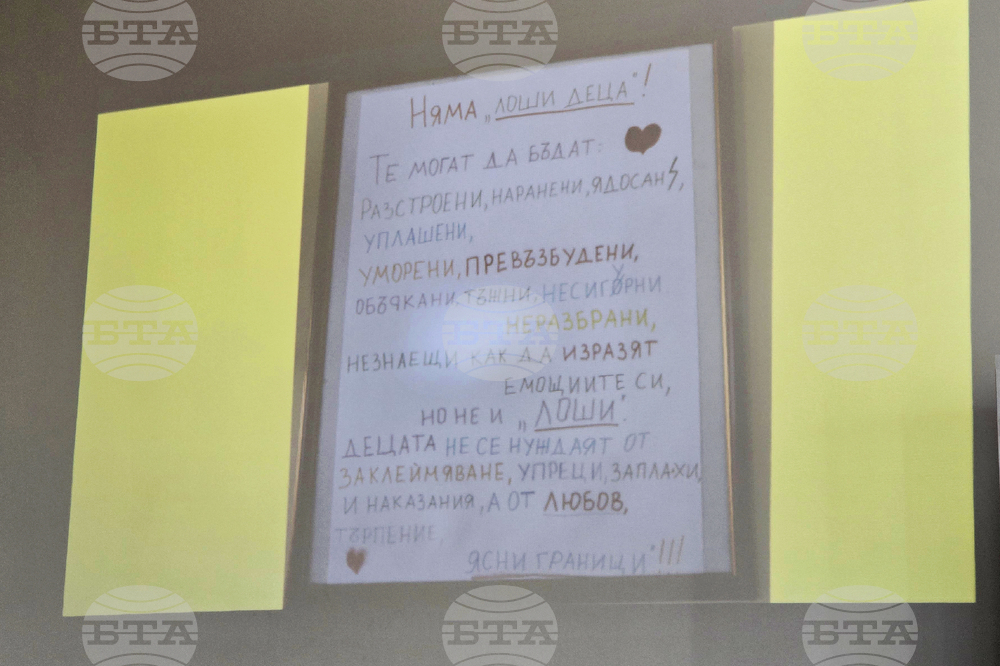 НЯМА „ЛОШИ ДЕЦА"!
ТЕ МОГАТ ДА БЪДАТ:
РАЗСТРОЕНИ, НАРАНЕНИ, ЯДОСАНИ,
УПЛАШЕНИ,
УМОРЕНИ, ПРЕВЪЗБУДЕНИ,
ОБЪРКАНИ, ТЪЖНИ, НЕСИГУРНИ
НЕРАЗБРАНИ,
НЕЗНАЕЩИ КАК ДА ИЗРАЗЯТ
ЕМОЦИИТЕ СИ,
НО НЕ И „ЛОШИ".
ДЕЦАТА НЕ СЕ НУЖДАЯТ ОТ
ЗАКЛЕЙМЯВАНЕ, УПРЕЦИ, ЗАПЛАХИ,
И НАКАЗАНИЯ, А ОТ ЛЮБОВ,
ТЪРПЕНИЕ,
ЯСНИ ГРАНИЦИ"!!!
БТА
БТА
БТА
БТА
БТА
БТА
БТА
БТА
БТА